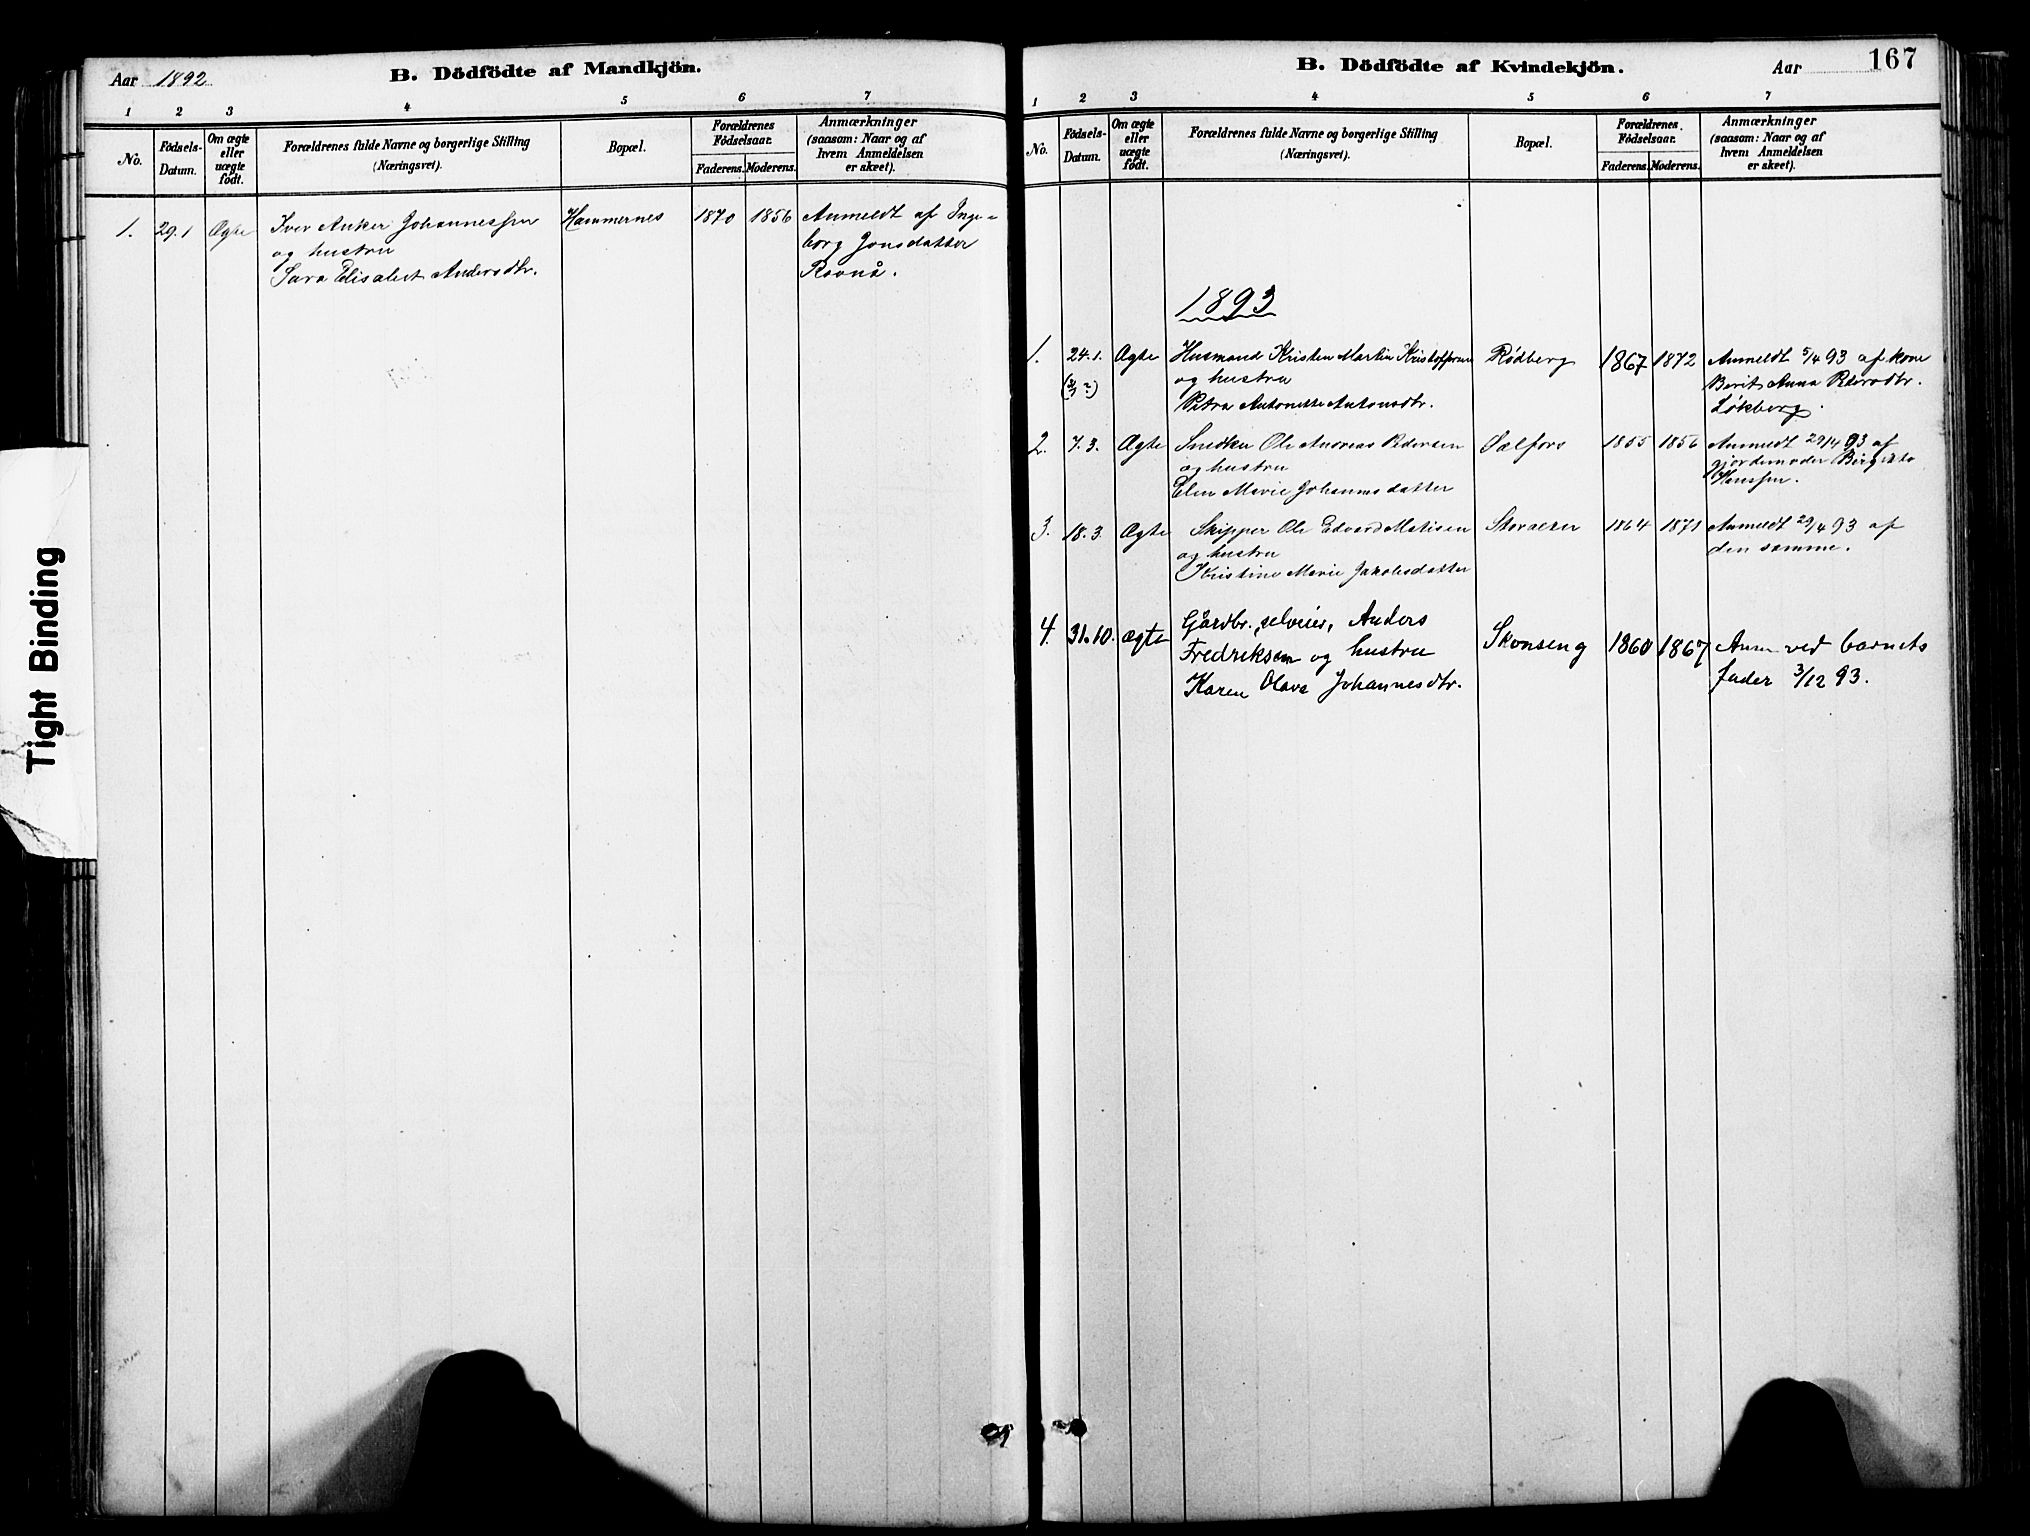 Aar 1892
B. Dödfödte af Mandkjön.
1 2 3 4 5 6 7
No. Födsels-Datum. Om ægte eller uægte födt. Forældrenes fulde Navne og borgerlige Stilling (Næringsvei). Bopæl. Forældrenes Fødselsaar. Faderens. Moderens. Anmærkninger (saasom: Naar og af hvem Anmeldelsen er skeet).
1. 29.1 Ægte Iver Anker Johannessen Hammernes 1870 1856 Anmeldt af Inge-
og hustru borg Jonsdatter
Sara Elisabet Andersdtr. Ravnå.
Tight Binding
B. Dödfödte af Kvindekjön.
Aar
167
1 2 3 4 5 6 7
No. Födsels-Datum. Om ægte eller uægte födt. Forældrenes fulde Navne og borgerlige Stilling (Næringsvei). Bopæl. Forældrenes Fødselsaar. Faderens. Moderens. Anmærkninger (saasom: Naar og af hvem Anmeldelsen er skeet).
1893
1. 24.1. Ægte Husmand Kristen Martin Kristoffersen Rødberg 1867 1872 Anmeldt 5/4 93 af kone
og hustru Berit Anna Pedersdtr.
Petra Antonette Antonsdtr. Løkberg.
2. 7.3. Ægte Snedker Ole Andreas Pedersen Dalfors 1855 1856 Anmeldt 29/4 93 af
og hustru gjordemoder
Elen Marie Johannesdatter Hanssen.
3. 18.3. Ægte Skipper Ole Edvard Matisen 1864 1871 Anmeldt 29/4 93 af
og hustru den samme.
Kristine Marie Jakobsdatter
4. 31.10. ægte Gårdbr., selveier, Anders Skonseng 1860 1867 Anm ved barnets
Fredriksen og hustru fader 3/12 93.
Karen Olava Johannesdtr.